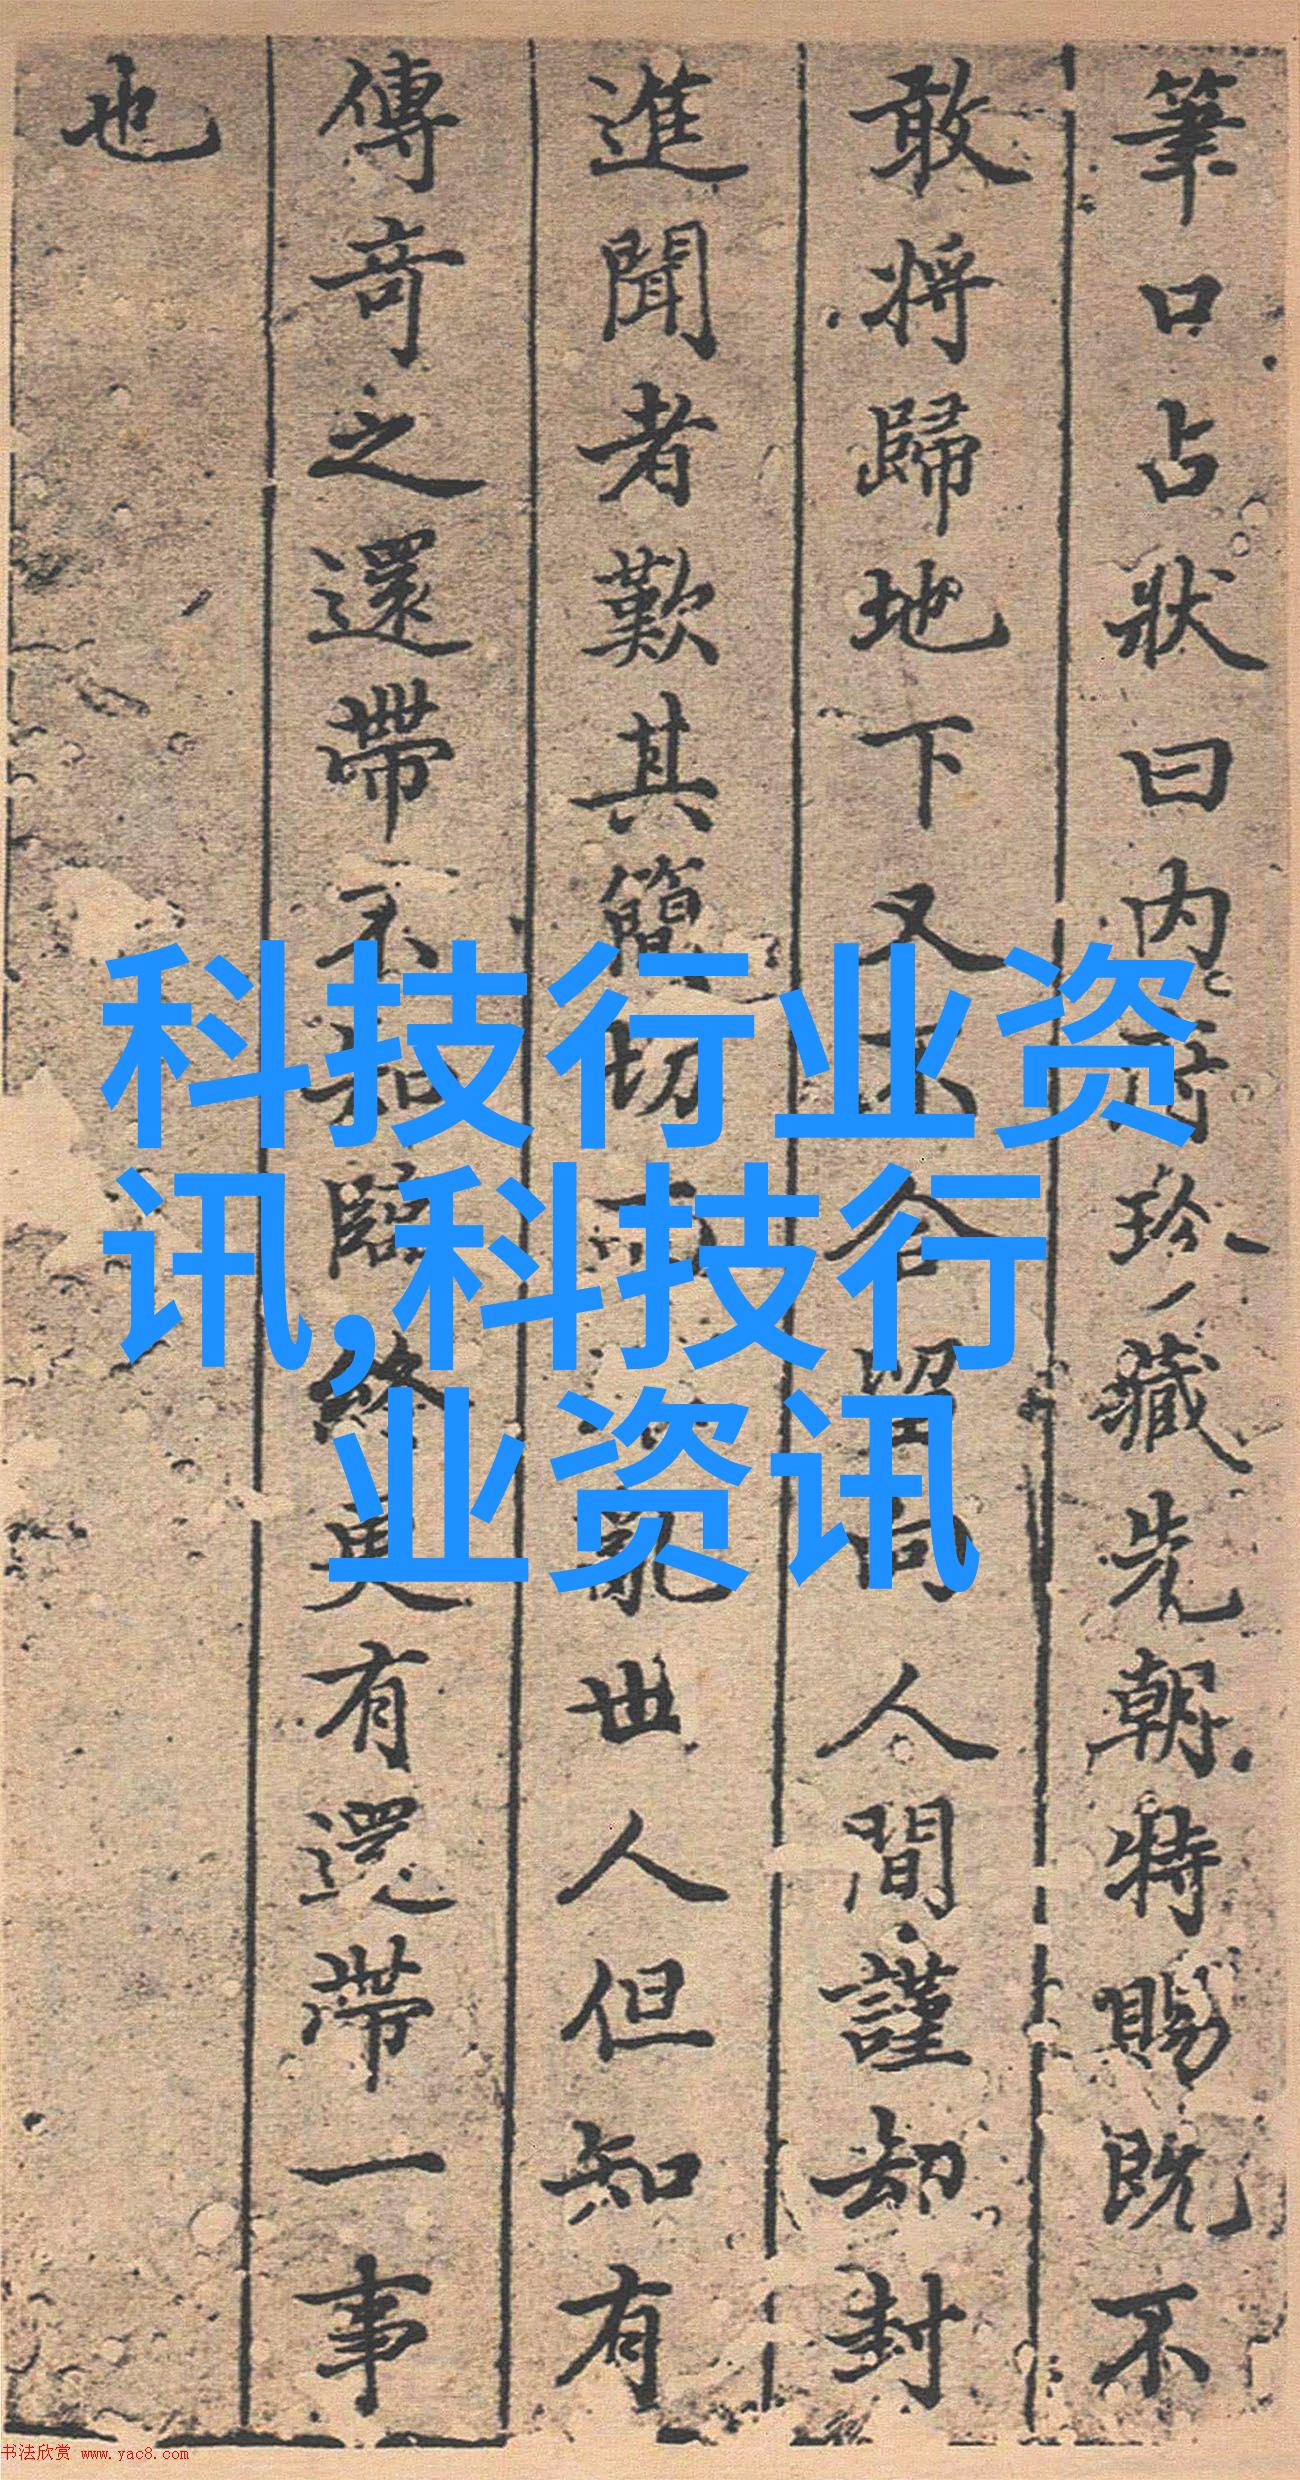 筆口占狀曰内府珍藏先朝特賜既不
敢將歸地下又不合留向人間謹却封
進聞者歎其簡切而亂世人但知有
傳奇之還帶不知臨終更有還帶一事
也
科技行业资
讯,科技行
业资讯
书法欣赏 www.yac8.com